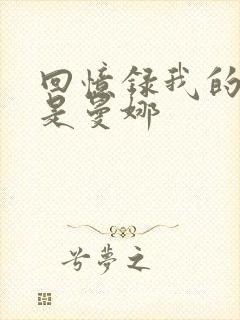 回憶錄我的
是曼娜
兮夢之